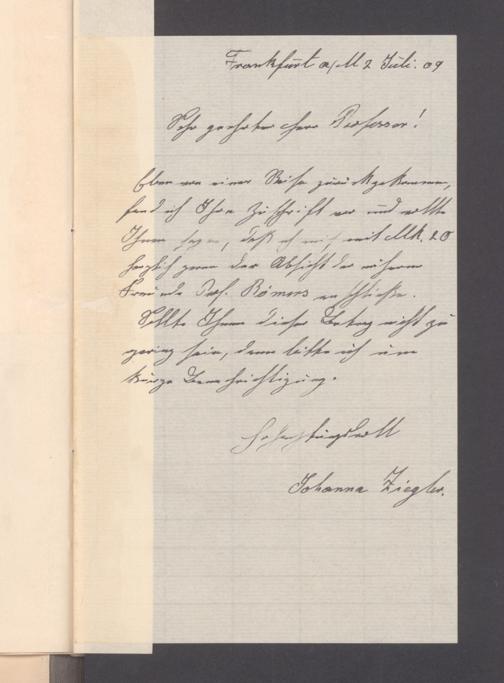 Frankfurt a/M 2 Juli. 09
Sehr geehrter Herr Professor!
Eben von einer Reise zurückgekommen,
fand ich Ihre Zuschrift vor und wollte
Ihnen sagen, daß ich mich mit Mk. 20
herzlich gern der Absicht der näheren
Freunde Prof. Römers anschließe.
Sollte Ihnen dieser Betrag nicht zu
gering sein, dann bitte ich um
kurze Benachrichtigung.
Hochachtungsvoll
Johanna Ziegler.